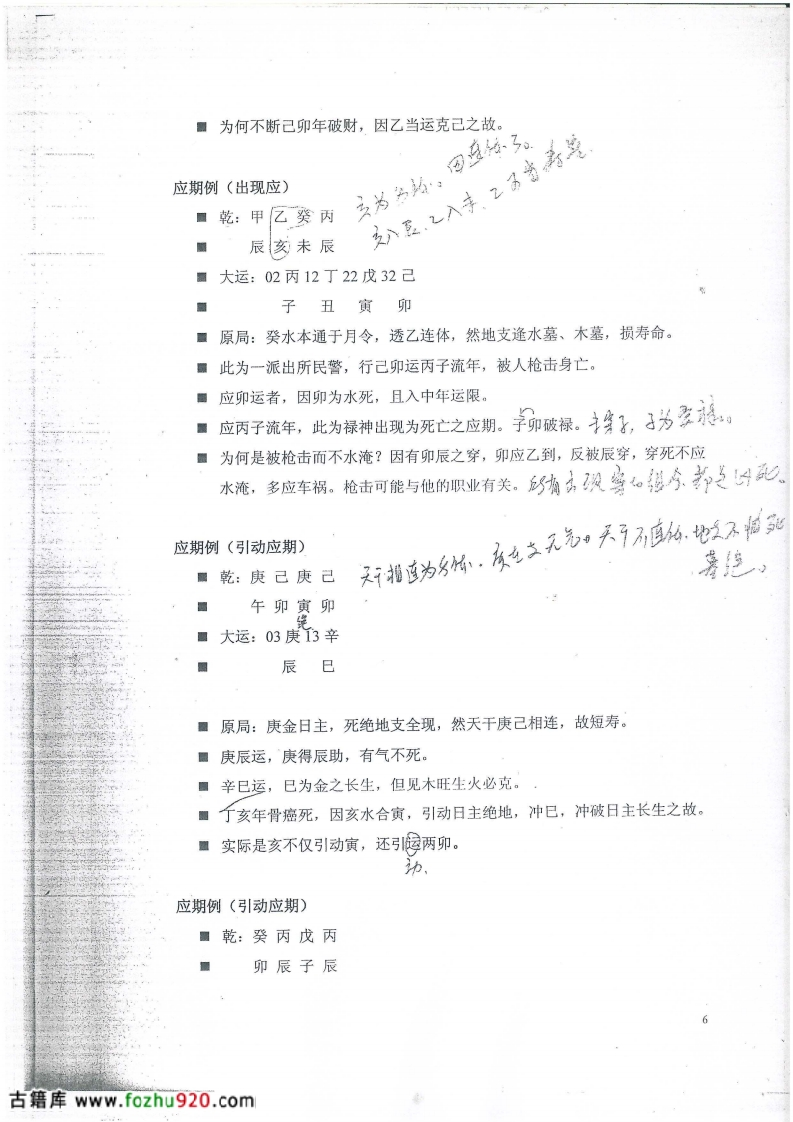 ■ 为何不断己卯年破财，因乙当运克己之故。
应期例（出现应）
■ 乾：甲 乙 癸 丙
■ 辰 亥 未 辰
亥入辰、乙入未、
■ 大运：02 丙 12 丁 22 戊 32 己
■ 子 丑 寅 卯
■ 原局：癸水本通于月令，透乙连体，然地支逢水墓、木墓，损寿命。
■ 此为一派出所民警，行己卯运丙子流年，被人枪击身亡。
■ 应卯运者，因卯为水死，且入中年运限。
■ 应丙子流年，此为禄神出现为死亡之应期。子卯破禄。
■ 为何是被枪击而不水淹？因有卯辰之穿，卯应乙到，反被辰穿，穿死不应
水淹，多应车祸。枪击可能与他的职业有关。
应期例（引动应期）
天干相连为外体、
■ 乾：庚 己 庚 己
墓绝。
■ 午 卯 寅 卯
绝
■ 大运：03 庚 13 辛
■ 辰 巳
■ 原局：庚金日主，死绝地支全现，然天干庚己相连，故短寿。
■ 庚辰运，庚得辰助，有气不死。
■ 辛巳运，巳为金之长生，但见木旺生火必克。
■ 丁亥年骨癌死，因亥水合寅，引动日主绝地，冲巳，冲破日主长生之故。
■ 实际是亥不仅引动寅，还引运两卯。
动、
应期例（引动应期）
■ 乾：癸 丙 戊 丙
■ 卯 辰 子 辰
6
古籍库 www.fozhu920.com